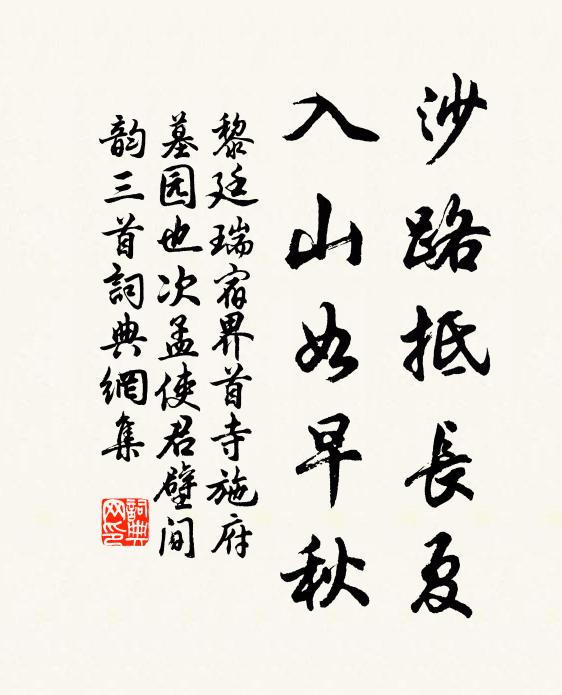 沙路抵長夏
入山如早秋
黎廷瑞宿界首寺施府
墓园也次孟使君壁间
韵三首詞典網集
詞典网印